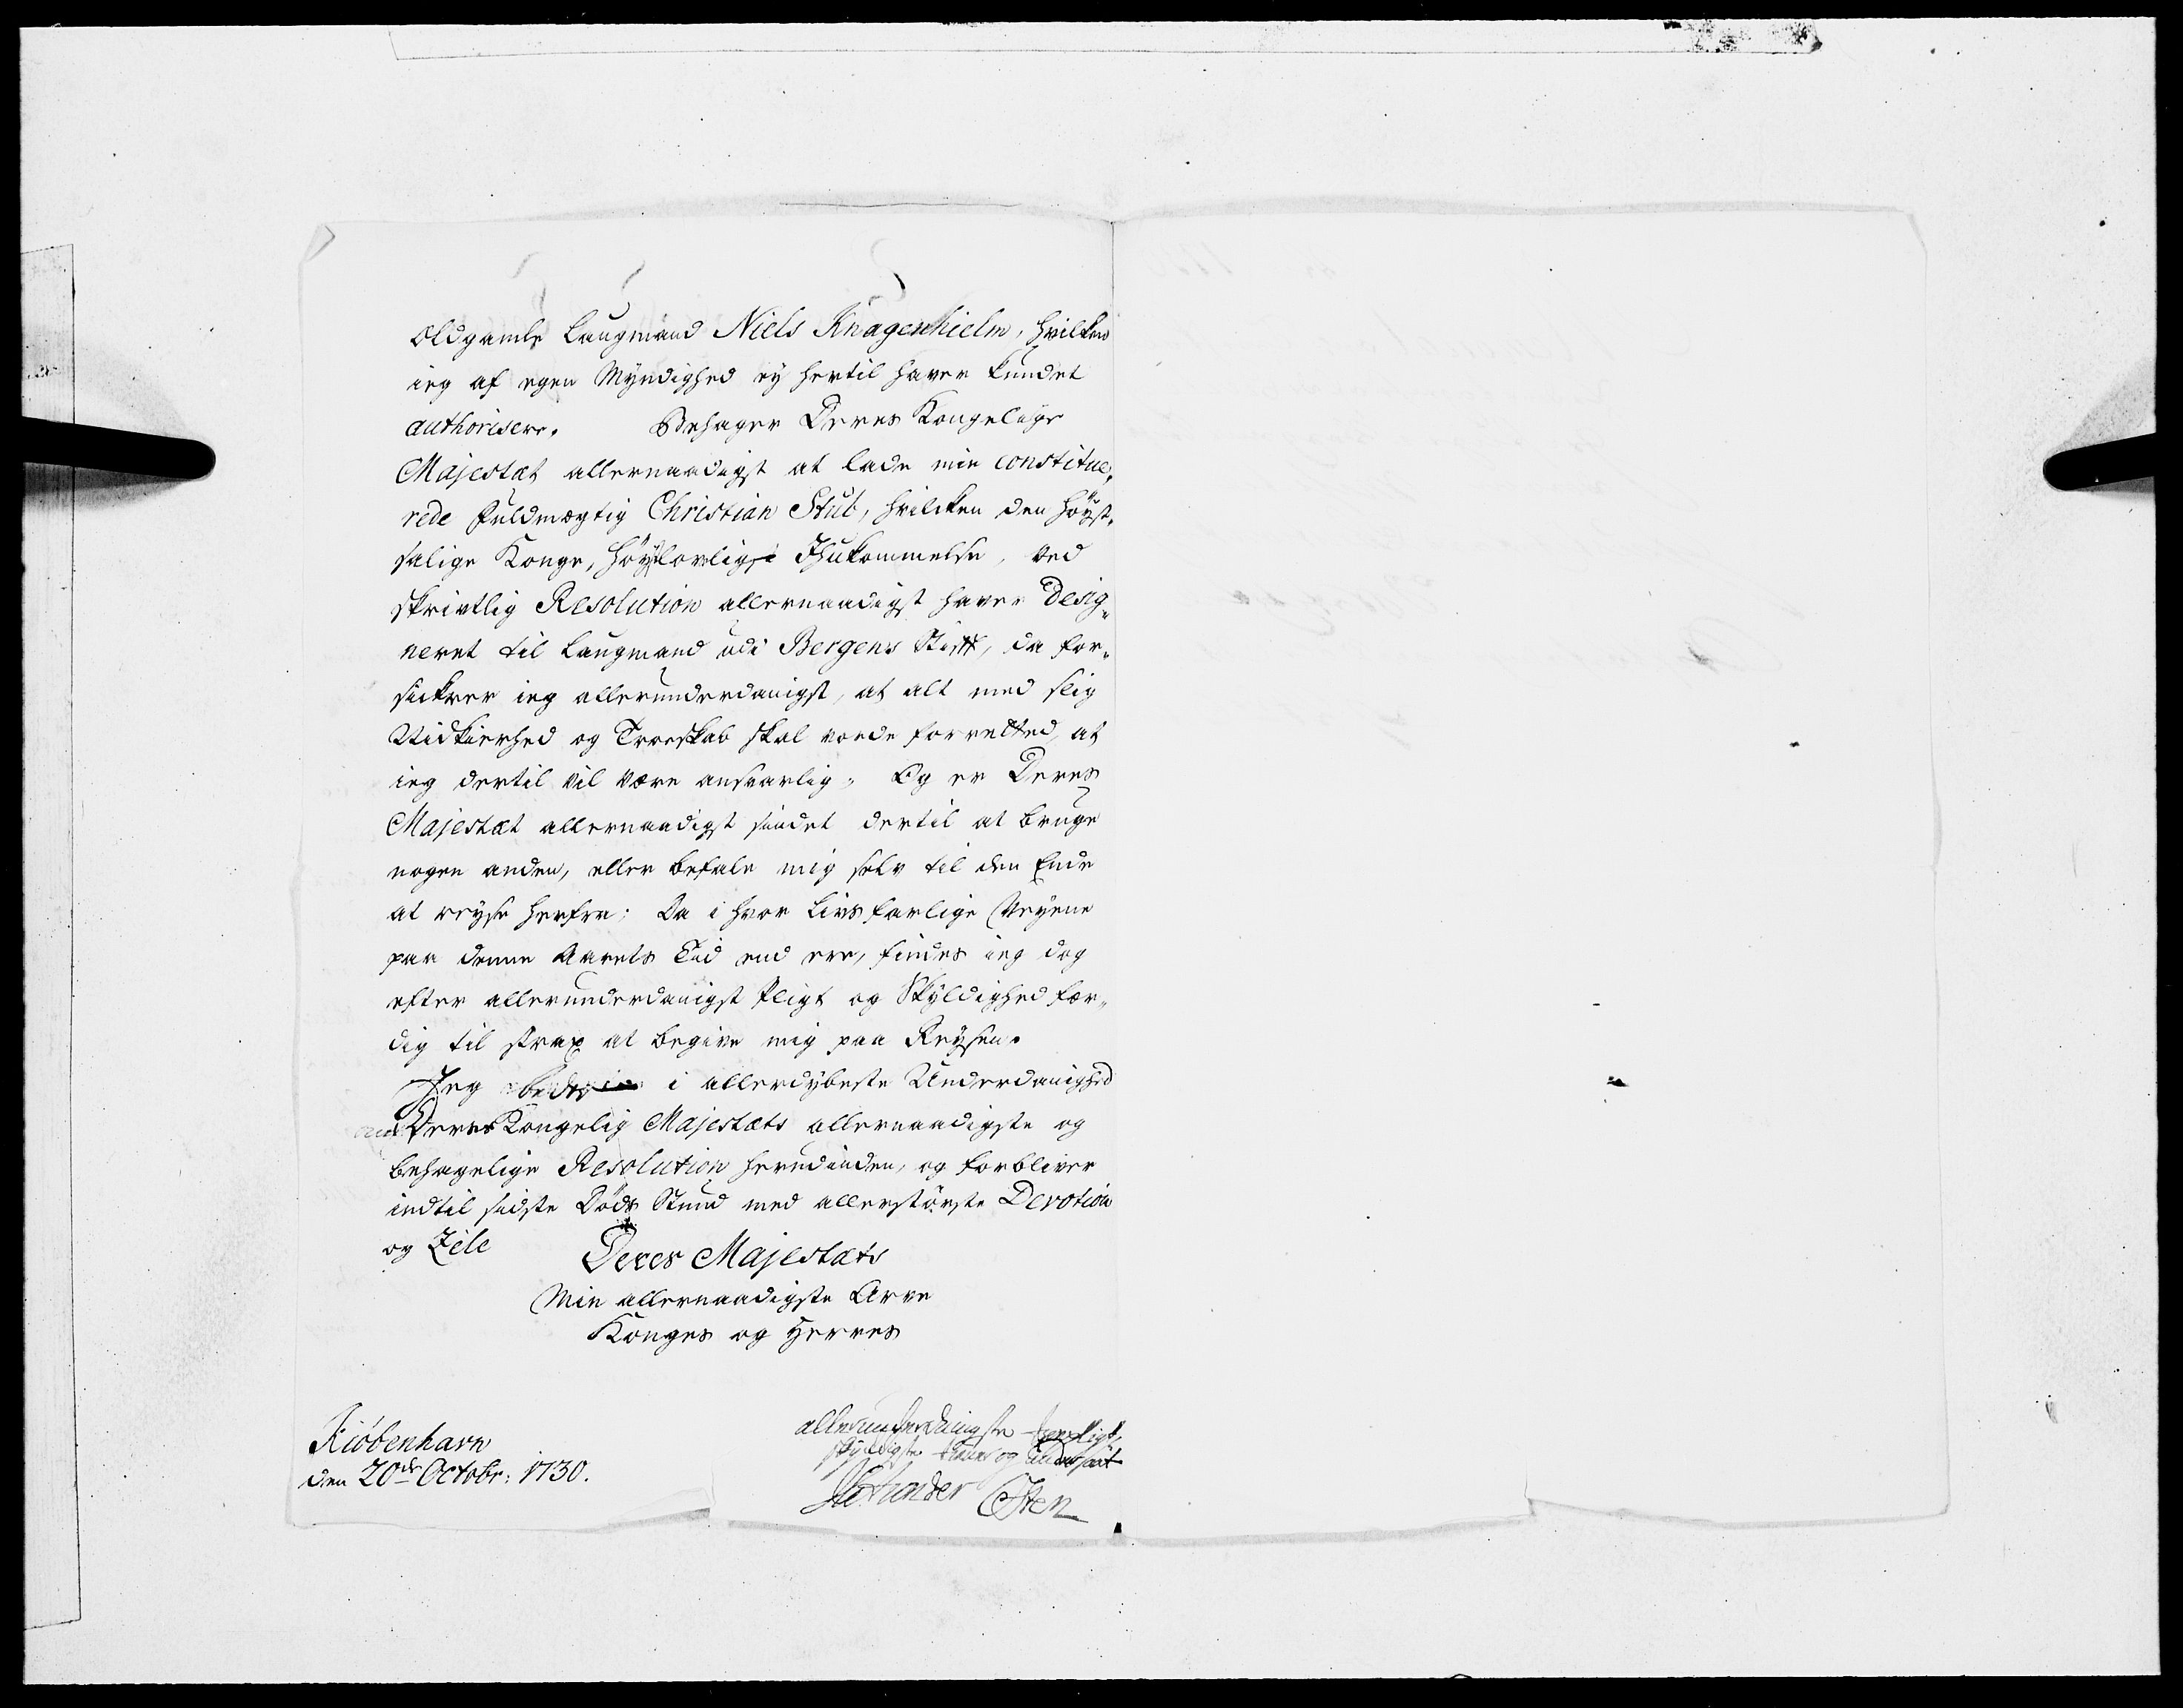 Oldgamle Laugmand Niels Knagenhielm, hvilken
ieg af egen Myndighed ey hertil haver kundet
authorisere. Behager Deres Kongelige
Majestæt allernaadigst at lade min constitue,,
rede Fuldmægtig Christian Stub, hvilcken den Høyst,,
salige Konge, Høylovligst Ihukommelse, ved
skrivtlig Resolution allernaadigst haver desig,,
neret til Laugmand udi Bergens Stift, da for,,
sickrer ieg allerunderdanigst, at alt med slig
Nidkierhed og Troeskab skal vorde forretted, at
ieg dertil vil være ansvarlig. Og er Deres
Majestæt allernaadigst sindet dertil at bruge
nogen anden, eller befale mig selv til den Ende
at reyse herfra; Da i hvor Livsfarlige Veyene
paa denne Aarets Tid end ere, findes ieg dog
efter allerunderdanigst Pligt og Skyldighed fær,,
dig til strax at begive mig paa Reysen.
Jeg beder i allerdybeste Underdanighed
om Deres Kongelig Majestæts allernaadigste og
behagelige Resolution herudinden, og forbliver
indtil sidste Døds Stund med allerstørste Devotion
og Zele
Deres Majestæts
Min allernaadigste Arve
Konges og Herres
Kiøbenhavn
den 20de Octobr: 1730.
allerunderdanigste
skyldigste tiener og undersaat